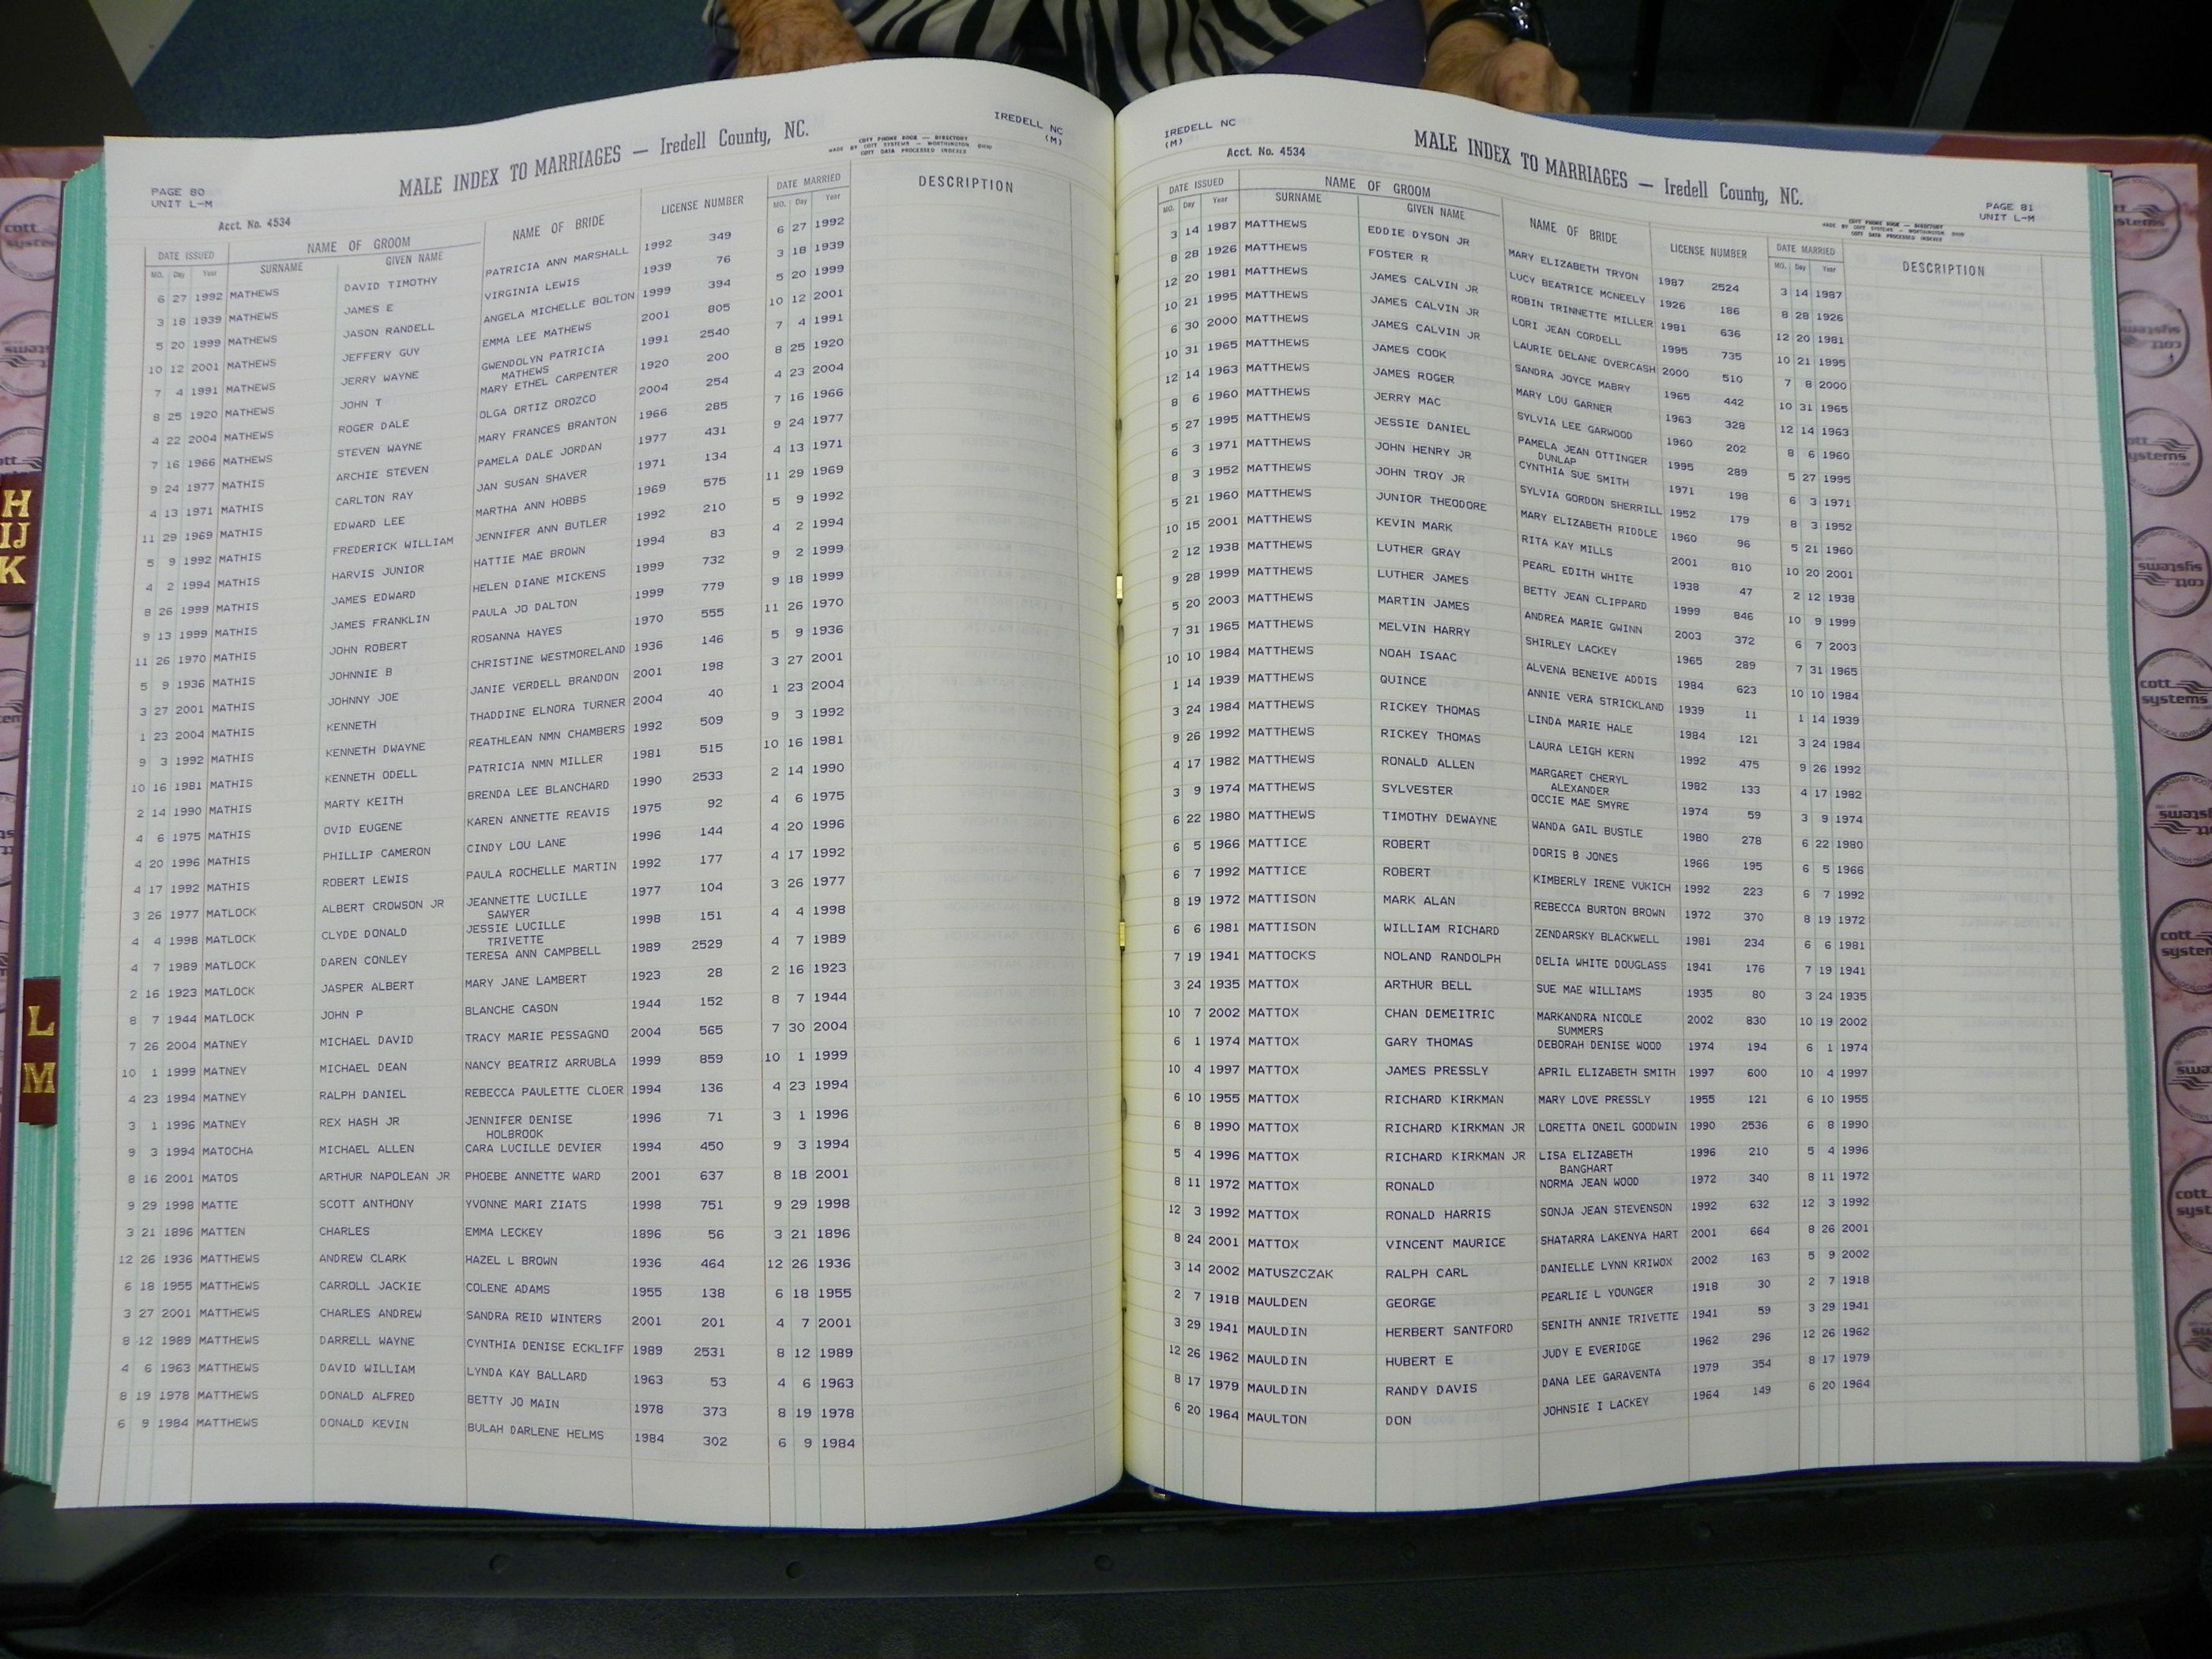 IREDELL NC
(M)
MALE INDEX TO MARRIAGES — Iredell County, NC.
COTT PHONE BOOK — DIRECTORY
MADE BY COTT SYSTEMS — WORTHINGTON OHIO
COTT DATA PROCESSED INDEXES
PAGE 80
UNIT L-M
Acct. No. 4534
DATE ISSUED NAME OF GROOM NAME OF BRIDE LICENSE NUMBER DATE MARRIED DESCRIPTION
MO. Day Year SURNAME GIVEN NAME MO. Day Year
6 27 1992 MATHEWS DAVID TIMOTHY PATRICIA ANN MARSHALL 1992 349 6 27 1992
3 18 1939 MATHEWS JAMES E VIRGINIA LEWIS 1939 76 3 18 1939
5 20 1999 MATHEWS JASON RANDELL ANGELA MICHELLE BOLTON 1999 394 5 20 1999
10 12 2001 MATHEWS JEFFERY GUY EMMA LEE MATHEWS 2001 805 10 12 2001
7 4 1991 MATHEWS JERRY WAYNE GWENDOLYN PATRICIA 1991 2540 7 4 1991
MATHEWS
8 25 1920 MATHEWS JOHN T MARY ETHEL CARPENTER 1920 200 8 25 1920
4 22 2004 MATHEWS ROGER DALE OLGA ORTIZ OROZCO 2004 254 4 23 2004
7 16 1966 MATHEWS STEVEN WAYNE MARY FRANCES BRANTON 1966 285 7 16 1966
9 24 1977 MATHIS ARCHIE STEVEN PAMELA DALE JORDAN 1977 431 9 24 1977
4 13 1971 MATHIS CARLTON RAY JAN SUSAN SHAVER 1971 134 4 13 1971
11 29 1969 MATHIS EDWARD LEE MARTHA ANN HOBBS 1969 575 11 29 1969
5 9 1992 MATHIS FREDERICK WILLIAM JENNIFER ANN BUTLER 1992 210 5 9 1992
4 2 1994 MATHIS HARVIS JUNIOR HATTIE MAE BROWN 1994 83 4 2 1994
8 26 1999 MATHIS JAMES EDWARD HELEN DIANE MICKENS 1999 732 9 2 1999
9 13 1999 MATHIS JAMES FRANKLIN PAULA JO DALTON 1999 779 9 18 1999
11 26 1970 MATHIS JOHN ROBERT ROSANNA HAYES 1970 555 11 26 1970
5 9 1936 MATHIS JOHNNIE B CHRISTINE WESTMORELAND 1936 146 5 9 1936
3 27 2001 MATHIS JOHNNY JOE JANIE VERDELL BRANDON 2001 198 3 27 2001
1 23 2004 MATHIS KENNETH THADDINE ELNORA TURNER 2004 40 1 23 2004
9 3 1992 MATHIS KENNETH DWAYNE REATHLEAN NMN CHAMBERS 1992 509 9 3 1992
10 16 1981 MATHIS KENNETH ODELL PATRICIA NMN MILLER 1981 515 10 16 1981
2 14 1990 MATHIS MARTY KEITH BRENDA LEE BLANCHARD 1990 2533 2 14 1990
4 6 1975 MATHIS OVID EUGENE KAREN ANNETTE REAVIS 1975 92 4 6 1975
4 20 1996 MATHIS PHILLIP CAMERON CINDY LOU LANE 1996 144 4 20 1996
4 17 1992 MATHIS ROBERT LEWIS PAULA ROCHELLE MARTIN 1992 177 4 17 1992
3 26 1977 MATLOCK ALBERT CROWSON JR JEANNETTE LUCILLE 1977 104 3 26 1977
SAWYER
4 4 1998 MATLOCK CLYDE DONALD JESSIE LUCILLE 1998 151 4 4 1998
TRIVETTE
4 7 1989 MATLOCK DAREN CONLEY TERESA ANN CAMPBELL 1989 2529 4 7 1989
2 16 1923 MATLOCK JASPER ALBERT MARY JANE LAMBERT 1923 28 2 16 1923
8 7 1944 MATLOCK JOHN P BLANCHE CASON 1944 152 8 7 1944
7 26 2004 MATNEY MICHAEL DAVID TRACY MARIE PESSAGNO 2004 565 7 30 2004
10 1 1999 MATNEY MICHAEL DEAN NANCY BEATRIZ ARRUBLA 1999 859 10 1 1999
4 23 1994 MATNEY RALPH DANIEL REBECCA PAULETTE CLOER 1994 136 4 23 1994
3 1 1996 MATNEY REX HASH JR JENNIFER DENISE 1996 71 3 1 1996
HOLBROOK
9 3 1994 MATOCHA MICHAEL ALLEN CARA LUCILLE DEVIER 1994 450 9 3 1994
8 16 2001 MATOS ARTHUR NAPOLEAN JR PHOEBE ANNETTE WARD 2001 637 8 18 2001
9 29 1998 MATTE SCOTT ANTHONY YVONNE MARI ZIATS 1998 751 9 29 1998
3 21 1896 MATTEN CHARLES EMMA LECKEY 1896 56 3 21 1896
12 26 1936 MATTHEWS ANDREW CLARK HAZEL L BROWN 1936 464 12 26 1936
6 18 1955 MATTHEWS CARROLL JACKIE COLENE ADAMS 1955 138 6 18 1955
3 27 2001 MATTHEWS CHARLES ANDREW SANDRA REID WINTERS 2001 201 4 7 2001
8 12 1989 MATTHEWS DARRELL WAYNE CYNTHIA DENISE ECKLIFF 1989 2531 8 12 1989
4 6 1963 MATTHEWS DAVID WILLIAM LYNDA KAY BALLARD 1963 53 4 6 1963
8 19 1978 MATTHEWS DONALD ALFRED BETTY JO MAIN 1978 373 8 19 1978
6 9 1984 MATTHEWS DONALD KEVIN BULAH DARLENE HELMS 1984 302 6 9 1984
IREDELL NC
(M)
Acct. No. 4534
MALE INDEX TO MARRIAGES — Iredell County, NC.
PAGE 81
UNIT L-M
COTT PHONE BOOK — DIRECTORY
MADE BY COTT SYSTEMS — WORTHINGTON OHIO
COTT DATA PROCESSED INDEXES
DATE ISSUED NAME OF GROOM NAME OF BRIDE LICENSE NUMBER DATE MARRIED DESCRIPTION
MO. Day Year SURNAME GIVEN NAME MO. Day Year
3 14 1987 MATTHEWS EDDIE DYSON JR MARY ELIZABETH TRYON 1987 2524 3 14 1987
8 28 1926 MATTHEWS FOSTER R LUCY BEATRICE MCNEELY 1926 186 8 28 1926
12 20 1981 MATTHEWS JAMES CALVIN JR ROBIN TRINNETTE MILLER 1981 636 12 20 1981
10 21 1995 MATTHEWS JAMES CALVIN JR LORI JEAN CORDELL 1995 735 10 21 1995
6 30 2000 MATTHEWS JAMES CALVIN JR LAURIE DELANE OVERCASH 2000 510 7 8 2000
10 31 1965 MATTHEWS JAMES COOK SANDRA JOYCE MABRY 1965 442 10 31 1965
12 14 1963 MATTHEWS JAMES ROGER MARY LOU GARNER 1963 328 12 14 1963
8 6 1960 MATTHEWS JERRY MAC SYLVIA LEE GARWOOD 1960 202 8 6 1960
5 27 1995 MATTHEWS JESSIE DANIEL PAMELA JEAN OTTINGER 1995 289 5 27 1995
DUNLAP
6 3 1971 MATTHEWS JOHN HENRY JR CYNTHIA SUE SMITH 1971 198 6 3 1971
8 3 1952 MATTHEWS JOHN TROY JR SYLVIA GORDON SHERRILL 1952 179 8 3 1952
5 21 1960 MATTHEWS JUNIOR THEODORE MARY ELIZABETH RIDDLE 1960 96 5 21 1960
10 15 2001 MATTHEWS KEVIN MARK RITA KAY MILLS 2001 810 10 20 2001
2 12 1938 MATTHEWS LUTHER GRAY PEARL EDITH WHITE 1938 47 2 12 1938
9 28 1999 MATTHEWS LUTHER JAMES BETTY JEAN CLIPPARD 1999 846 10 9 1999
5 20 2003 MATTHEWS MARTIN JAMES ANDREA MARIE GWINN 2003 372 6 7 2003
7 31 1965 MATTHEWS MELVIN HARRY SHIRLEY LACKEY 1965 289 7 31 1965
10 10 1984 MATTHEWS NOAH ISAAC ALVENA BENEIVE ADDIS 1984 623 10 10 1984
1 14 1939 MATTHEWS QUINCE ANNIE VERA STRICKLAND 1939 11 1 14 1939
3 24 1984 MATTHEWS RICKEY THOMAS LINDA MARIE HALE 1984 121 3 24 1984
9 26 1992 MATTHEWS RICKEY THOMAS LAURA LEIGH KERN 1992 475 9 26 1992
4 17 1982 MATTHEWS RONALD ALLEN MARGARET CHERYL 1982 133 4 17 1982
ALEXANDER
3 9 1974 MATTHEWS SYLVESTER OCCIE MAE SMYRE 1974 59 3 9 1974
6 22 1980 MATTHEWS TIMOTHY DEWAYNE WANDA GAIL BUSTLE 1980 278 6 22 1980
6 5 1966 MATTICE ROBERT DORIS B JONES 1966 195 6 5 1966
6 7 1992 MATTICE ROBERT KIMBERLY IRENE VUKICH 1992 223 6 7 1992
8 19 1972 MATTISON MARK ALAN REBECCA BURTON BROWN 1972 370 8 19 1972
6 6 1981 MATTISON WILLIAM RICHARD ZENDARSKY BLACKWELL 1981 234 6 6 1981
7 19 1941 MATTOCKS NOLAND RANDOLPH DELIA WHITE DOUGLASS 1941 176 7 19 1941
3 24 1935 MATTOX ARTHUR BELL SUE MAE WILLIAMS 1935 80 3 24 1935
10 7 2002 MATTOX CHAN DEMEITRIC MARKANDRA NICOLE 2002 830 10 19 2002
SUMMERS
6 1 1974 MATTOX GARY THOMAS DEBORAH DENISE WOOD 1974 194 6 1 1974
10 4 1997 MATTOX JAMES PRESSLY APRIL ELIZABETH SMITH 1997 600 10 4 1997
6 10 1955 MATTOX RICHARD KIRKMAN MARY LOVE PRESSLY 1955 121 6 10 1955
6 8 1990 MATTOX RICHARD KIRKMAN JR LORETTA ONEIL GOODWIN 1990 2536 6 8 1990
5 4 1996 MATTOX RICHARD KIRKMAN JR LISA ELIZABETH 1996 210 5 4 1996
BANGHART
8 11 1972 MATTOX RONALD NORMA JEAN WOOD 1972 340 8 11 1972
12 3 1992 MATTOX RONALD HARRIS SONJA JEAN STEVENSON 1992 632 12 3 1992
8 24 2001 MATTOX VINCENT MAURICE SHATARRA LAKENYA HART 2001 664 8 26 2001
3 14 2002 MATUSZCZAK RALPH CARL DANIELLE LYNN KRIWOX 2002 163 5 9 2002
2 7 1918 MAULDEN GEORGE PEARLIE L YOUNGER 1918 30 2 7 1918
3 29 1941 MAULDIN HERBERT SANTFORD SENITH ANNIE TRIVETTE 1941 59 3 29 1941
12 26 1962 MAULDIN HUBERT E JUDY E EVERIDGE 1962 296 12 26 1962
8 17 1979 MAULDIN RANDY DAVIS DANA LEE GARAVENTA 1979 354 8 17 1979
6 20 1964 MAULTON DON JOHNSIE I LACKEY 1964 149 6 20 1964
H
IJ
K
L
M
cott
systems